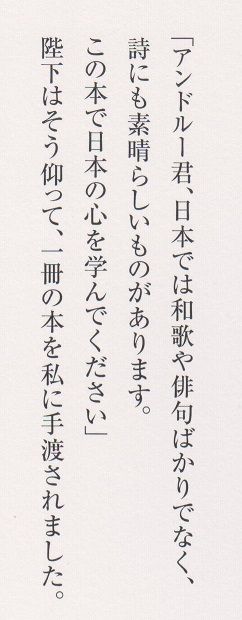 「アンドルー君、日本では和歌や俳句ばかりでなく、
詩にも素晴らしいものがあります。
この本で日本の心を学んでください」
陛下はそう仰って、一冊の本を私に手渡されました。